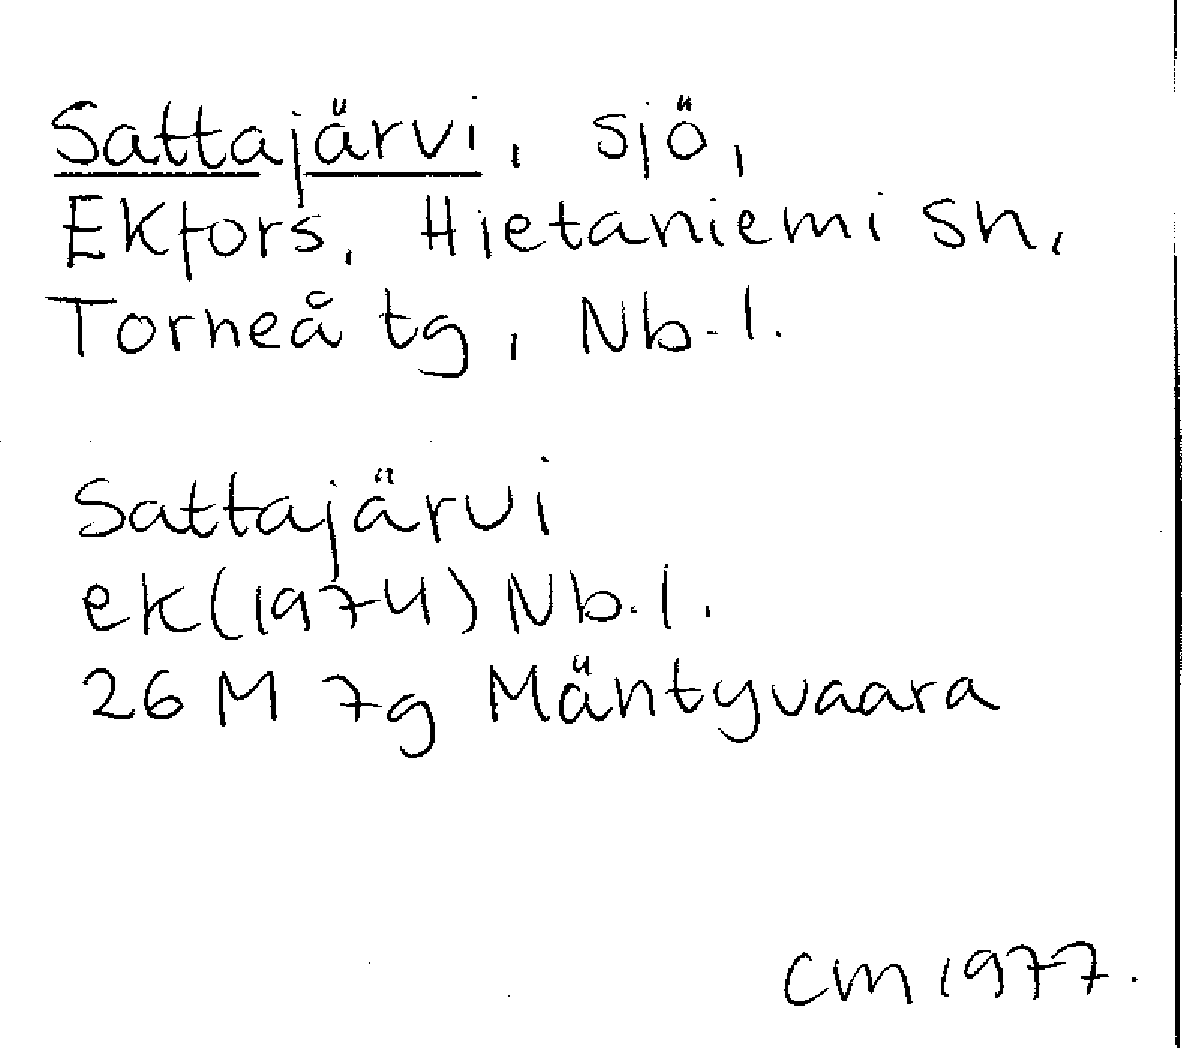 Sattajärvi, sjö,
Ekfors, Hietaniemi sn,
Torneå tg, Nb.l.
Sattajärvi
ek (1974) Nb.l.
26 M 7g Mäntyvaara
CM 1977.